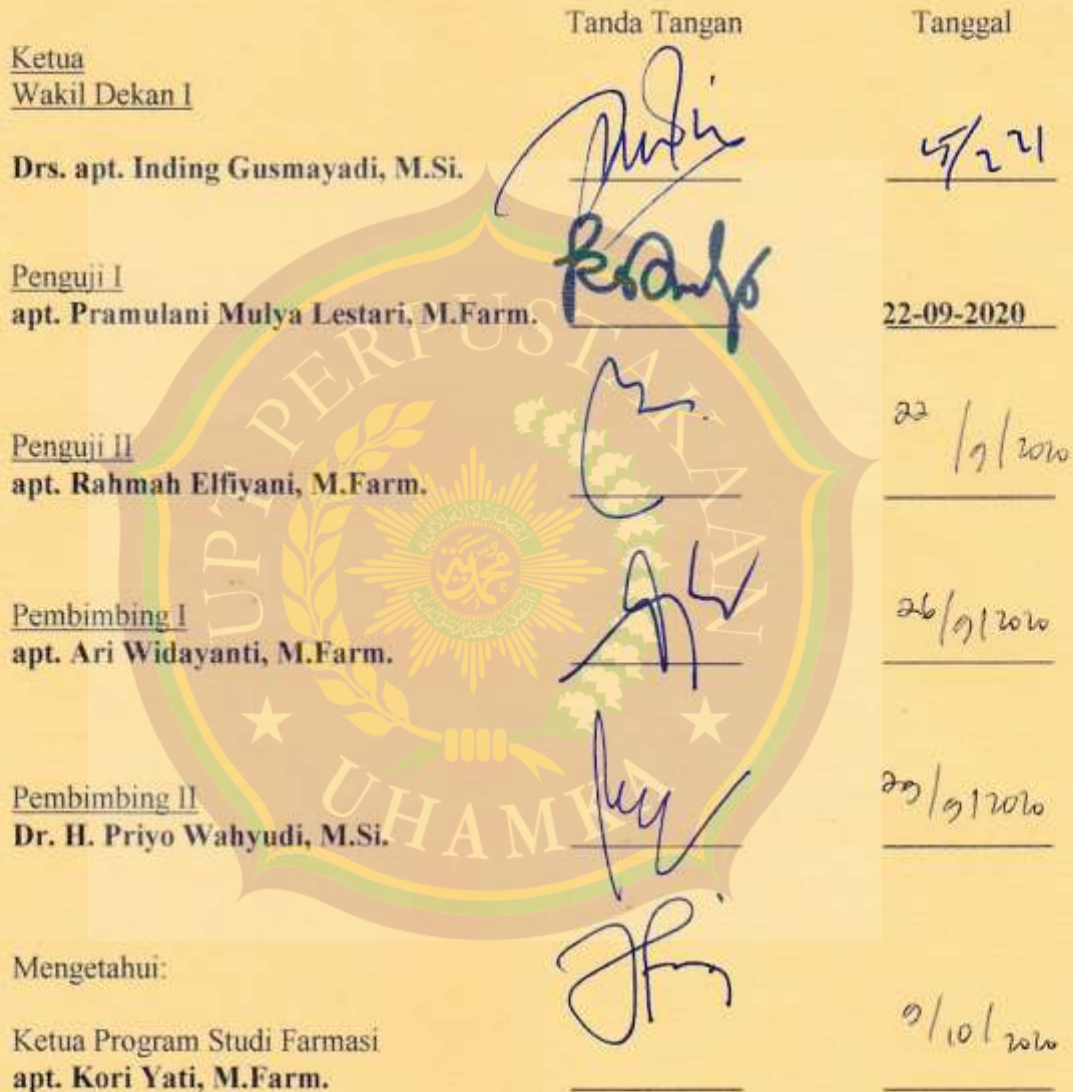 Tanda Tangan Tanggal
Ketua
Wakil Dekan I
Drs. apt. Inding Gusmayadi, M.Si.
Penguji I
apt. Pramulani Mulya Lestari, M.Farm. 22-09-2020
Penguji II
apt. Rahmah Elfiyani, M.Farm. 22/9/2020
Pembimbing I
apt. Ari Widayanti, M.Farm. 26/9/2020
Pembimbing II
Dr. H. Priyo Wahyudi, M.Si. 29/9/2020
Mengetahui:
Ketua Program Studi Farmasi 9/10/2020
apt. Kori Yati, M.Farm.
UPT PERPUSTAKAAN
UHAMKA